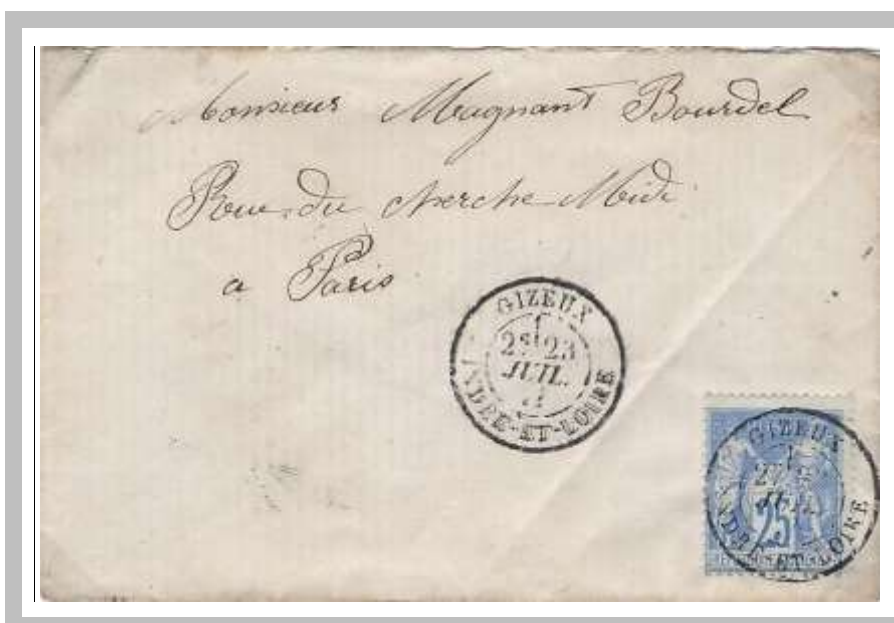 Monsieur Magnant Bourdel
Rue du Cherche Midi
a Paris
GIZEUX
23
JUIL.
INDRE-ET-LOIRE
GIZEUX
INDRE-ET-LOIRE
25